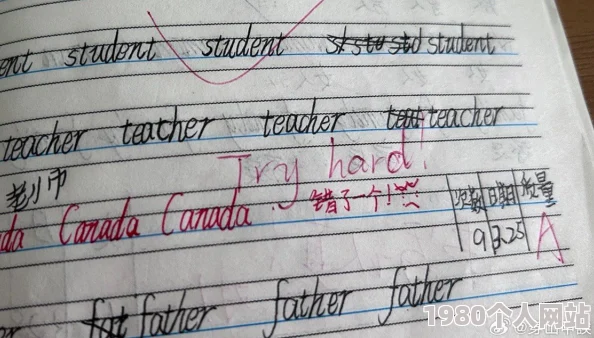 ent student student st stu std student
teacher teatcher teacher teat teacher
Try hard!
老师
da Canada Canada. 错了一个!
次数 日期 质量
9 3.25 A
fat father father father
1980个人网站